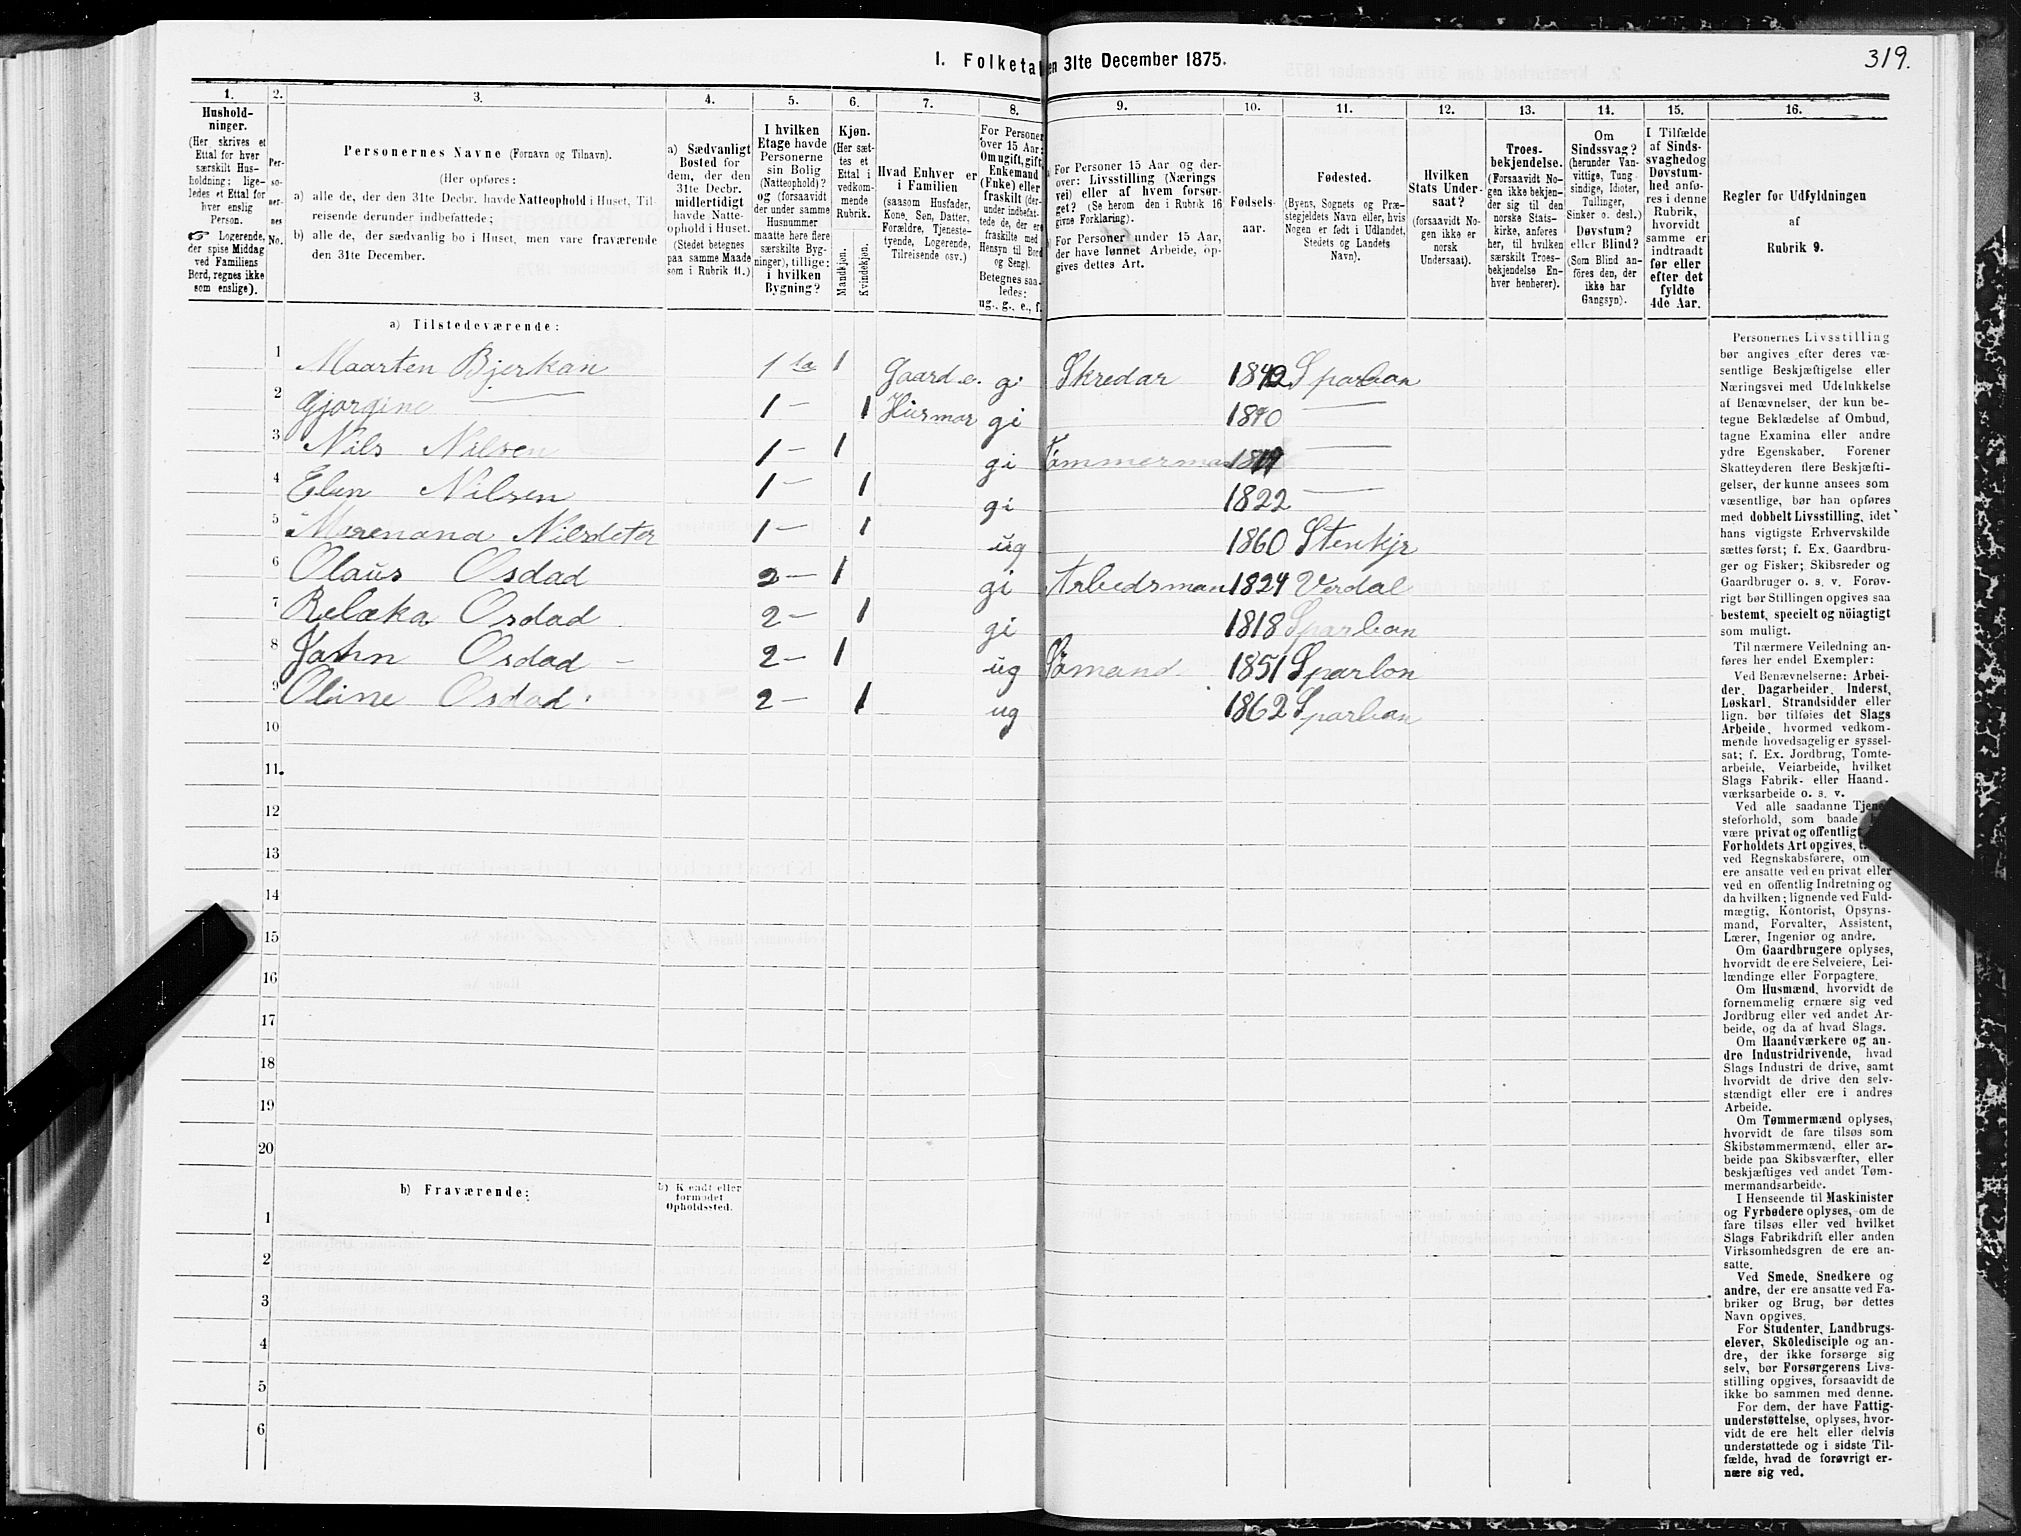 319.
I. Folketal den 31te December 1875.
1.
2.
3.
4.
5.
6.
7.
8.
9.
10.
11.
12.
13.
14.
15.
16.
Hushold-
ninger.
(Her skrives et
Ettal for hver
særskilt Hus-
holdning; lige-
ledes et Ettal for
hver enslig
Person.
☞ Logerende,
der spise Middag
ved Familiens
Bord, regnes ikke
som enslige).
Per-
so-
ner-
nes
No.
Personernes Navne (Fornavn og Tilnavn).
(Her opføres:
a) alle de, der den 31te Decbr. havde Natteophold i Huset, Til-
reisende derunder indbefattede;
b) alle de, der sædvanlig bo i Huset, men vare fraværende
den 31te December.
a) Sædvanligt
Bosted for
dem, der den
31te Decbr.
midlertidigt
havde Natte-
ophold i Huset.
(Stedet betegnes
paa samme Maade
som i Rubrik 11.)
I hvilken
Etage havde
Personerne
sin Bolig
(Natteophold)?
og (forsaavidt
der under samme
Husnummer
maatte høre flere
særskilte Byg-
ninger), tillige:
i hvilken
Bygning?
Kjøn.
(Her sæt-
tes et
Ettal i
vedkom-
mende
Rubrik.
Mandkjøn.
Kvindekjøn.
Hvad Enhver er
i Familien
(saasom Husfader,
Kone, Søn, Datter,
Forældre, Tjeneste-
tyende, Logerende,
Tilreisende osv.)
For Personer
over 15 Aar:
Om ugift, gift,
Enkemand
(Enke) eller
fraskilt (der-
under indbefat-
tede de, der ere
fraskilte med
Hensyn til Bord
og Seng).
Betegnes saa-
ledes:
ug., g., e., f.
For Personer 15 Aar og der-
over: Livsstilling (Nærings
vei) eller af hvem forsør-
get? (Se herom den i Rubrik 16
givne Forklaring).
For Personer under 15 Aar,
der have lønnet Arbeide, op-
gives dettes Art.
Fødsels-
aar.
Fødested.
(Byens, Sognets og Præ-
stegjeldets Navn eller, hvis
Nogen er født i Udlandet,
Stedets og Landets
Navn).
Hvilken
Stats Under-
saat?
(forsaavidt No-
gen ikke er
norsk
Undersaat).
Troes-
bekjendelse.
(Forsaavidt No-
gen ikke bekjen-
der sig til den
norske Stats-
kirke, anføres
her, til hvilken
særskilt Troes-
bekjendelse En-
hver henhører).
Om
Sindssvag?
(herunder Van-
vittige, Tung
sindige, Idioter,
Tullinger,
Sinker o. desl.)
Døvstum?
eller Blind?
(Som Blind an-
føres den, der
ikke har
Gangsyn).
I Tilfælde
af Sinds-
svaghed og
Døvstum-
hed anfø-
res i denne
Rubrik,
hvorvidt
samme er
indtraadt
før eller
efter det
fyldte
4de Aar.
Regler for Udfyldningen
af
Rubrik 9.
a) Tilstedeværende:
1 Maarten Bjerkan 1 ta 1 Gaard.e. gi Skredar 1842 Sparban
2 Gjorgine — 1 — 1 Husmor gi 1840 —
3 Nils Nilsen 1 — 1 gi Tömmerman —
4 Elen Nilsen 1 — 1 gi 1822 —
5 Merenana Nilsdeter 1 — 1 ug 1860 Stenkjr
6 Olaus Osdad 2 — 1 gi Arbedsman 1824 Verdal
7 Relæka Osdad 2 — 1 gi 1818 Sparban
8 Jahn Osdad — 2 — 1 ug Sömand 1851 Sparbon
9 Oline Osdad. 2 — 1 ug 1862 Sparban
10
11.
12
13
14
15
16
17
18
19
20
b) Fraværende:
b) Kjendt eller
formodet
Opholdssted.
1
2
3
4
5
6
Personernes Livsstilling
bør angives efter deres væ-
sentlige Beskjæftigelse eller
Næringsvei med Udelukkelse
af Benævnelser, der kun be-
tegne Beklædelse af Ombud,
tagne Examina eller andre
ydre Egenskaber. Forener
Skatteyderen flere Beskjæfti-
gelser, der kunne ansees som
væsentlige, bør han opføres
med dobbelt Livsstilling, idet
hans vigtigste Erhvervskilde
sættes først; f. Ex. Gaardbru-
ger og Fisker; Skibsreder og
Gaardbruger o. s. v. Forøv-
rigt bør Stillingen opgives saa
bestemt, specielt og nöiagtigt
som muligt.
Til nærmere Veiledning an-
føres her endel Exempler:
Ved Benævnelserne: Arbei-
der, Dagarbeider, Inderst,
Løskarl, Strandsidder eller
lign. bør tilføies det Slags
Arbeide, hvormed vedkom-
mende hovedsagelig er syssel-
sat; f. Ex. Jordbrug, Tomte-
arbeide, Veiarbeide, hvilket
Slags Fabrik- eller Haand-
værksarbeide o. s. v.
Ved alle saadanne Tjene-
steforhold, som baade
være privat og offentligt
Forholdets Art opgives,
ved Regnskabsførere, om
ere ansatte ved en privat eller
ved en offentlig Indretning og
da hvilken; lignende ved Fuld-
mægtig, Kontorist, Opsyns-
mand, Forvalter, Assistent,
Lærer, Ingeniør og andre.
Om Gaardbrugere oplyses,
hvorvidt de ere Selveiere, Lei-
lændinge eller Forpagtere.
Om Husmænd, hvorvidt de
fornemmelig ernære sig ved
Jordbrug eller ved andet Ar-
beide, og da af hvad Slags.
Om Haandværkere og an-
dre Industridrivende, hvad
Slags Industri de drive, samt
hvorvidt de drive den selv-
stændigt eller ere i andres
Arbeide.
Om Tømmermænd oplyses,
hvorvidt de fare tilsøs som
Skibstømmermænd, eller ar-
beide paa Skibsværfter, eller
beskjæftiges ved andet Tøm-
mermandsarbeide.
I Henseende til Maskinister
og Fyrbødere oplyses, om de
fare tilsøs eller ved hvilket
Slags Fabrikdrift eller anden
Virksomhedsgren de ere an-
satte.
Ved Smede, Snedkere og
andre, der ere ansatte ved Fa-
briker og Brug, bør dettes
Navn opgives.
For Studenter, Landbrugs-
elever, Skoledisciple og an-
dre, der ikke forsørge sig
selv, bør Forsørgerens Livs-
stilling opgives, forsaavidt de
ikke bo sammen med denne.
For dem, der have Fattig-
understøttelse, oplyses, hvor-
vidt de ere helt eller delvis
understøttede og i sidste Til-
fælde, hvad de forøvrigt er-
nære sig ved.